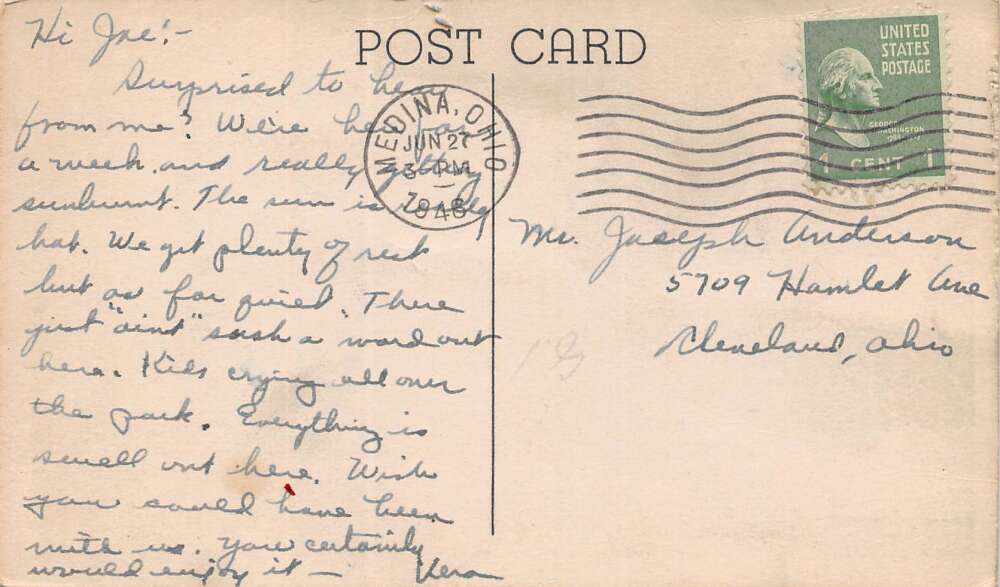 Hi Joe!-
Surprised to hear
from me? We're here for
a week and really getting
sunburnt. The sun is really
hot. We get plenty of rest
but as for quiet. There
just "aint" such a word out
here. Kids crying all over
the park. Everything is
swell out here. Wish
you could have been
with us. You certainly
would enjoy it — Vera
POST CARD
MEDINA, OHIO
JUN 27
3 - PM
1948
UNITED
STATES
POSTAGE
GEORGE
WASHINGTON
1 CENT 1
Mr. Joseph Anderson
5709 Hamlet Ave
Cleveland, Ohio